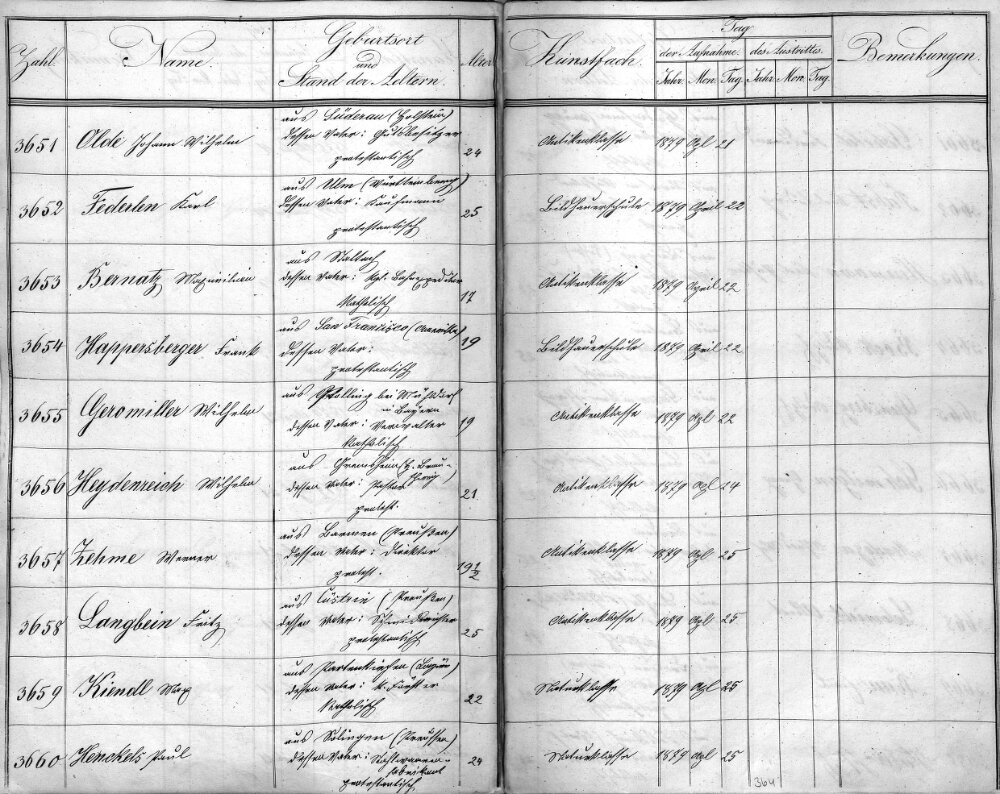 Zahl. Name. Geburtsort und Stand der Aeltern. Alter Kunstfach. Tag der Aufnahme. des Austrittes. Bemerkungen.
Jahr. Mon. Tag. Jahr. Mon. Tag.
aus Lüderau (Holstein)
3651 Olde Johann Wilhelm dessen Vater: Gutsbesitzer 24 Antikenklasse 1879 Apl 21
protestantisch
aus Ulm (Württemberg)
3652 Federlen Karl dessen Vater: Kaufmann 25 Bildhauerschule 1879 April 22
protestantisch
aus
3653 Bernatz Maximilian dessen Vater: Kgl. Bahnexpeditor 17 Antikenklasse 1879 April 22
katholisch
aus San Francisco (Amerika)
3654 Happersberger Frank dessen Vater: 19 Bildhauerschule 1879 April 22
protestantisch
aus Polling bei Mühldorf
in Bayern
3655 Geromiller Wilhelm dessen Vater: Verwalter 19 Antikenklasse 1879 Apl 22
katholisch
aus
3656 Heydenreich Wilhelm dessen Vater: Pastor 21 Antikenklasse 1879 Apl 24
protest.
aus Barmen (Preußen)
3657 Zehme Werner dessen Vater: Direktor 19 1/2 Antikenklasse 1879 Apl 25
protest.
aus Cüstrin (Preußen)
3658 Langbein Fritz dessen Vater: 25 Antikenklasse 1879 Apl 25
protestantisch
aus Partenkirchen (Bayern)
3659 Kiendl Max dessen Vater: k. Förster 22 Naturklasse 1879 Apl 25
katholisch
aus Solingen (Preussen)
3660 Henckels Paul dessen Vater: Stahlwaaren- 24 Naturklasse 1879 Apl 25
fabrikant
protestantisch.
364